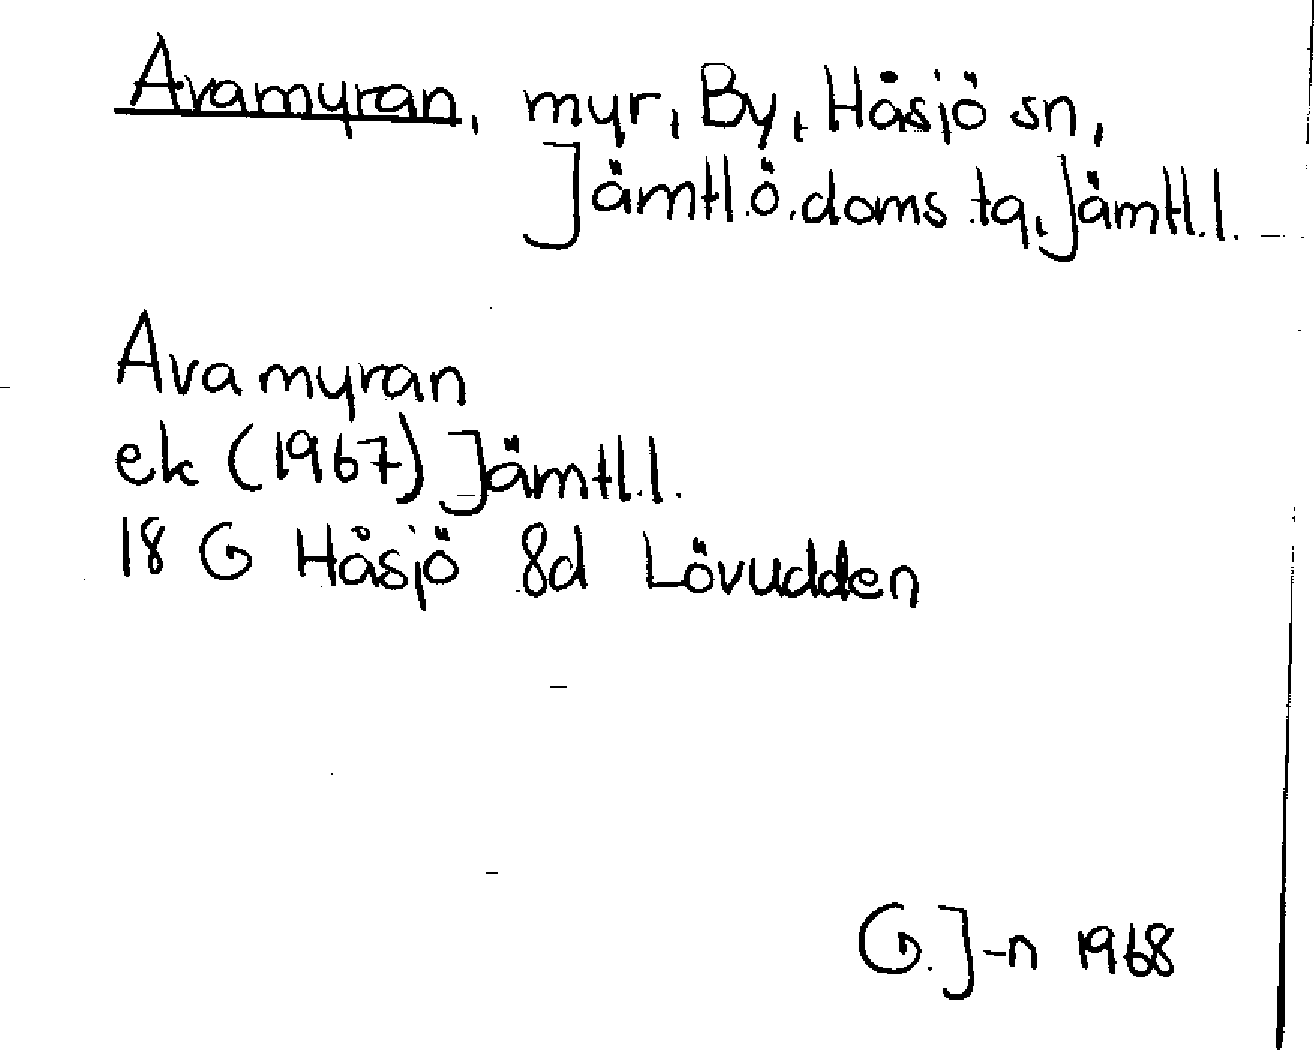 Avamyran, myr, By, Håsjö sn,
Jämtl.ö.doms tg, Jämtl.l.
Avamyran
ek (1967) Jämtl.l.
18 G Håsjö 8d Lövudden
G.J-n 1968